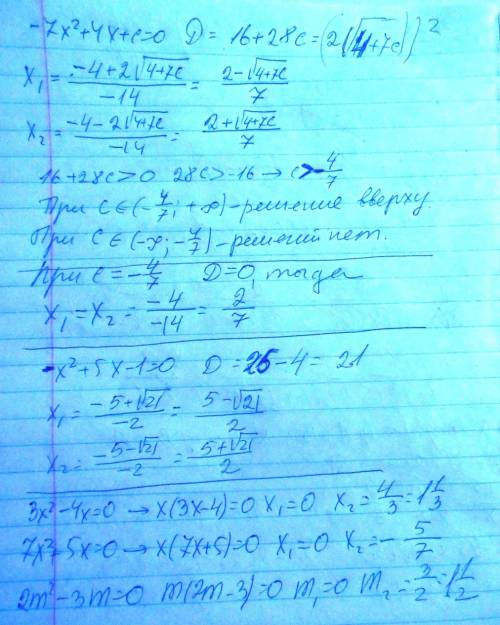 -7x²+4x+c=0 D = 16+28c = (2√(4+7c))²
x₁ = (-4+2√(4+7c))/-14 = (2-√(4+7c))/7
x₂ = (-4-2√(4+7c))/-14 = (2+√(4+7c))/7
16+28c>0 28c>-16 → c>-4/7
При c∈(-4/7; +∞) - решение вверху.
При c∈(-∞; -4/7) - решений нет.
При c = -4/7 D=0, тогда
x₁ = x₂ = -4/-14 = 2/7
-x²+5x-1=0 D = 25-4 = 21
x₁ = (-5+√21)/-2 = (5-√21)/2
x₂ = (-5-√21)/-2 = (5+√21)/2
3x²-4x=0 → x(3x-4)=0 x₁=0 x₂ = 4/3 = 1 1/3
7x²+5x=0 → x(7x+5)=0 x₁=0 x₂ = -5/7
2m²-3m=0 m(2m-3)=0 m₁=0 m₂ = 3/2 = 1 1/2